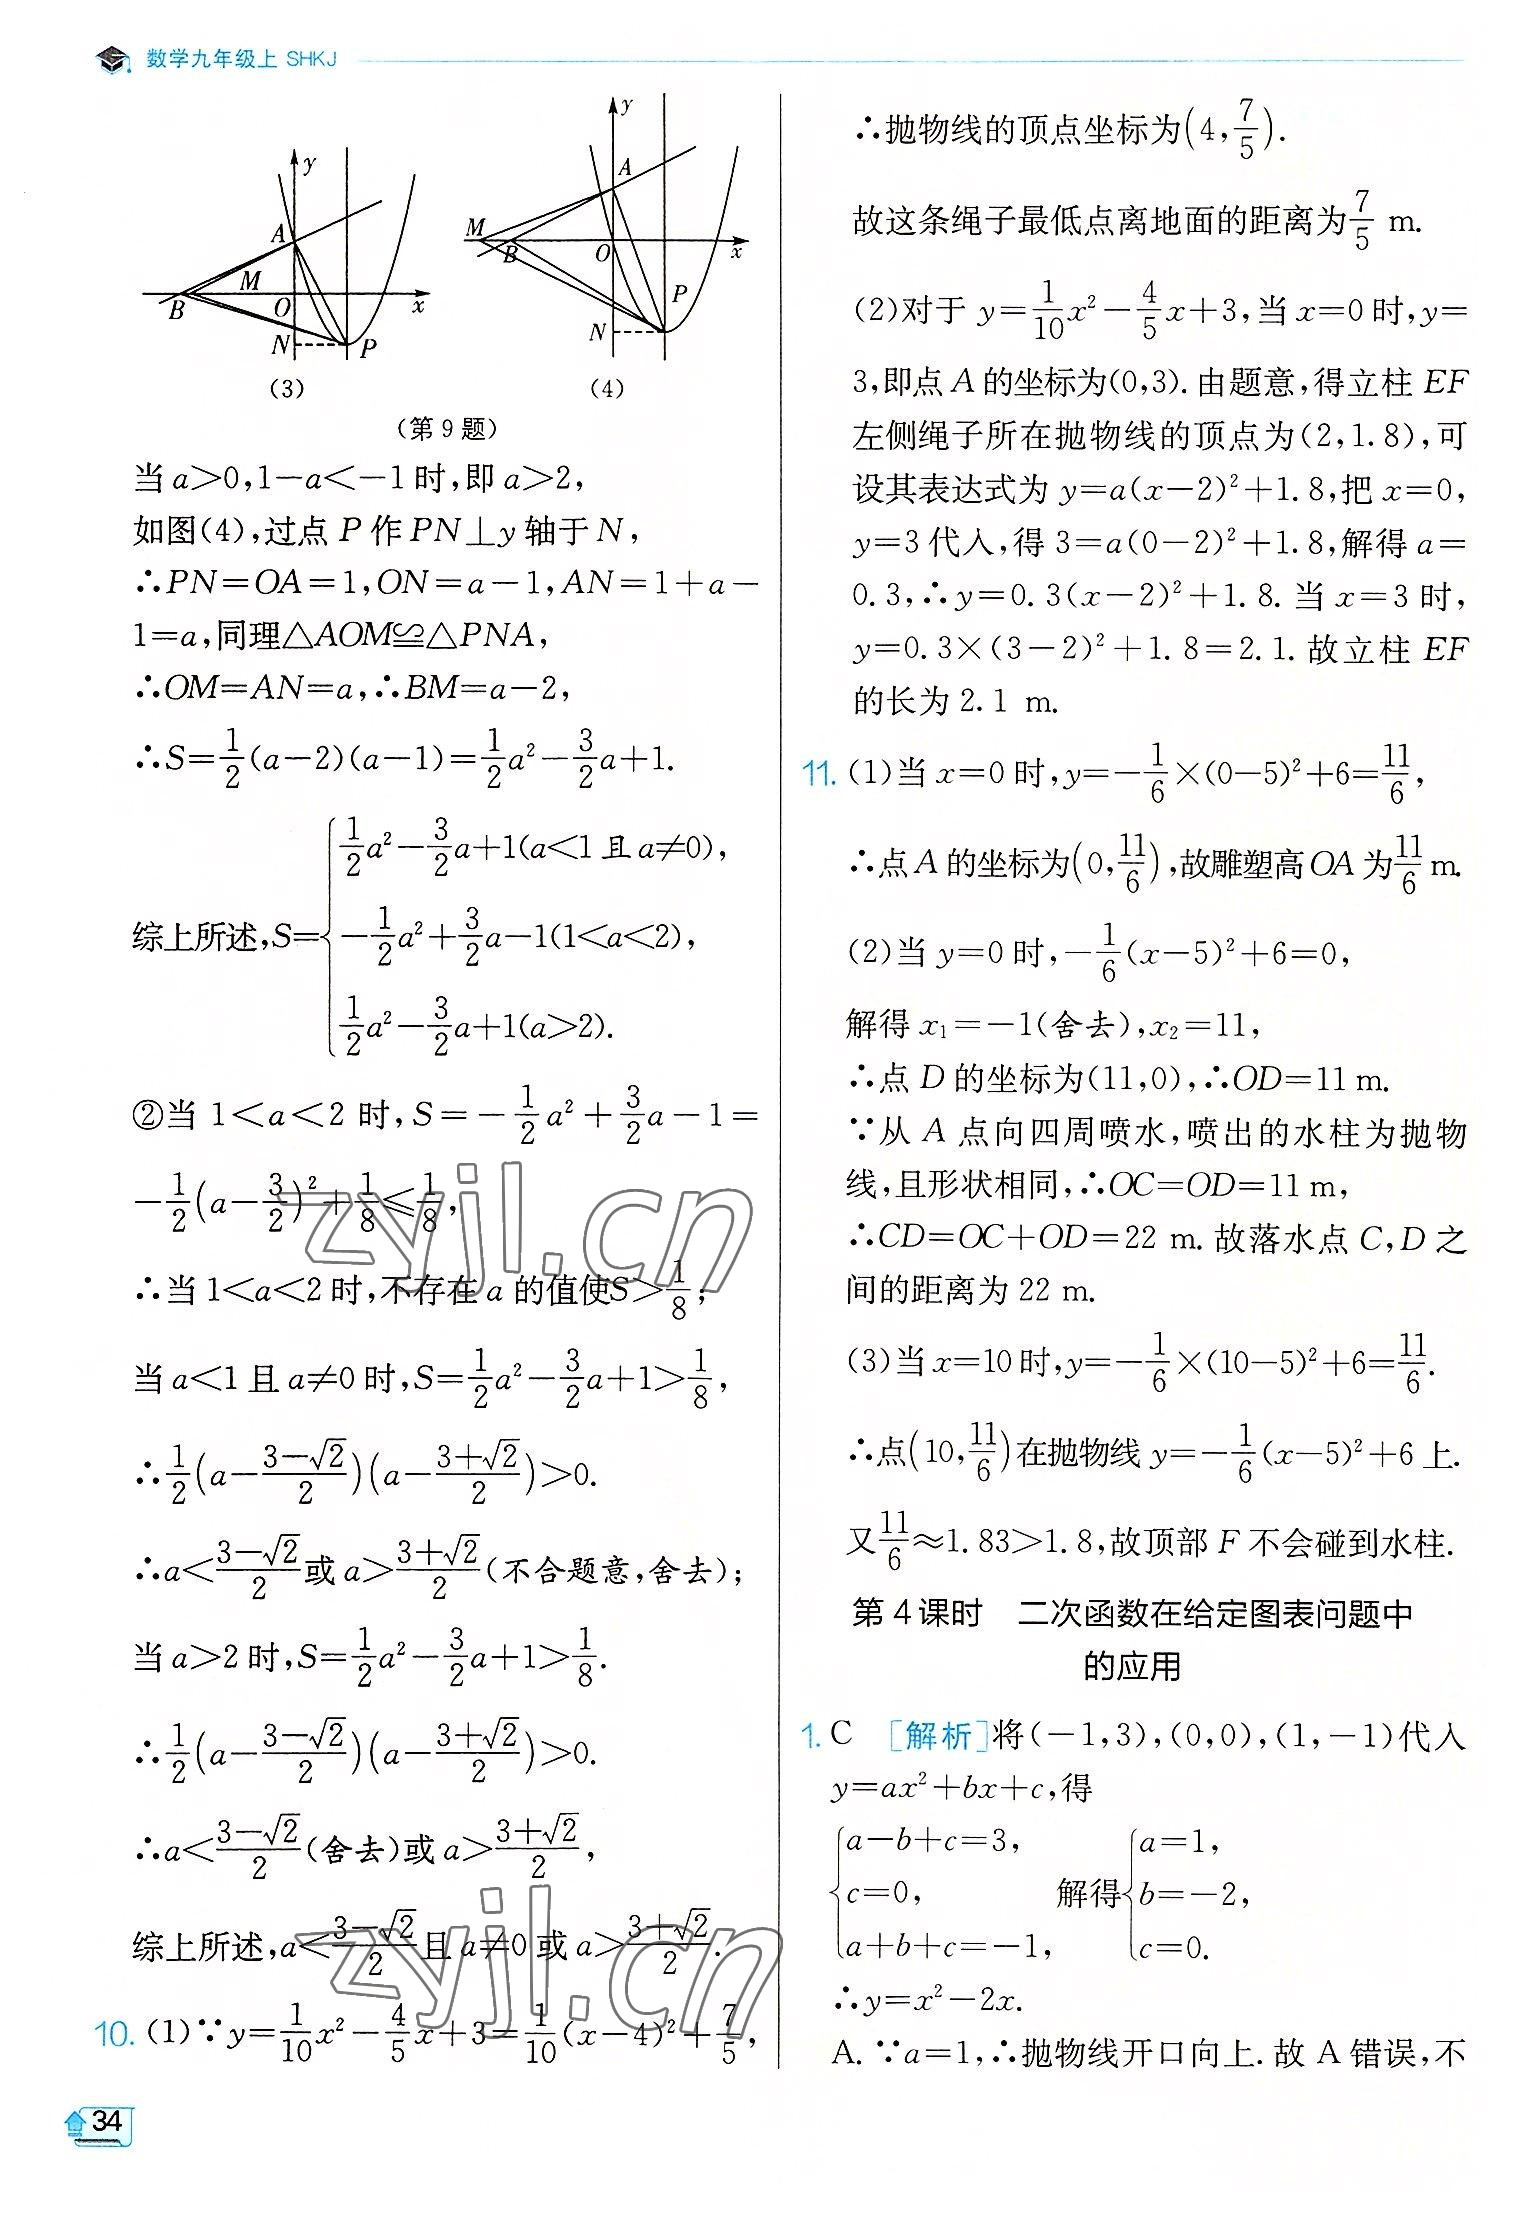 数学九年级上 SHKJ
y
A
M
B
O
x
N
P
(3)
y
A
M
B
O
x
P
N
(4)
(第 9 题)
当 a>0,1-a<-1 时,即 a>2,
如图(4),过点 P 作 PN⊥y 轴于 N,
∴PN=OA=1,ON=a-1,AN=1+a-
1=a,同理△AOM≌△PNA,
∴OM=AN=a,∴BM=a-2,
∴S=1/2(a-2)(a-1)=1/2a²-3/2a+1.
综上所述,S={1/2a²-3/2a+1(a<1 且 a≠0),
-1/2a²+3/2a-1(1<a<2),
1/2a²-3/2a+1(a>2).
②当 1<a<2 时,S=-1/2a²+3/2a-1=
-1/2(a-3/2)²+1/8≤1/8,
∴当 1<a<2 时,不存在 a 的值使S>1/8;
当 a<1 且 a≠0 时,S=1/2a²-3/2a+1>1/8,
∴1/2(a-(3-√2)/2)(a-(3+√2)/2)>0.
∴a<(3-√2)/2或 a>(3+√2)/2(不合题意,舍去);
当 a>2 时,S=1/2a²-3/2a+1>1/8.
∴1/2(a-(3-√2)/2)(a-(3+√2)/2)>0.
∴a<(3-√2)/2(舍去)或 a>(3+√2)/2,
综上所述,a<(3-√2)/2且 a≠0 或 a>(3+√2)/2.
10. (1)∵y=1/10x²-4/5x+3=1/10(x-4)²+7/5,
∴抛物线的顶点坐标为(4,7/5).
故这条绳子最低点离地面的距离为7/5 m.
(2)对于 y=1/10x²-4/5x+3,当 x=0 时,y=
3,即点 A 的坐标为(0,3). 由题意,得立柱 EF
左侧绳子所在抛物线的顶点为(2,1.8),可
设其表达式为 y=a(x-2)²+1.8,把 x=0,
y=3 代入,得 3=a(0-2)²+1.8,解得 a=
0.3,∴y=0.3(x-2)²+1.8. 当 x=3 时,
y=0.3×(3-2)²+1.8=2.1. 故立柱 EF
的长为 2.1 m.
11. (1)当 x=0 时,y=-1/6×(0-5)²+6=11/6,
∴点 A 的坐标为(0,11/6),故雕塑高 OA 为11/6 m.
(2)当 y=0 时,-1/6(x-5)²+6=0,
解得 x₁=-1(舍去),x₂=11,
∴点 D 的坐标为(11,0),∴OD=11 m.
∵从 A 点向四周喷水,喷出的水柱为抛物
线,且形状相同,∴OC=OD=11 m,
∴CD=OC+OD=22 m. 故落水点 C,D 之
间的距离为 22 m.
(3)当 x=10 时,y=-1/6×(10-5)²+6=11/6.
∴点(10,11/6)在抛物线 y=-1/6(x-5)²+6 上.
又11/6≈1.83>1.8,故顶部 F 不会碰到水柱.
第 4 课时 二次函数在给定图表问题中
的应用
1. C [解析]将(-1,3),(0,0),(1,-1)代入
y=ax²+bx+c,得
{a-b+c=3, c=0, a+b+c=-1, 解得{a=1, b=-2, c=0.
∴y=x²-2x.
A. ∵a=1,∴抛物线开口向上. 故 A 错误,不
34
zyjl.cn
zyjl.cn